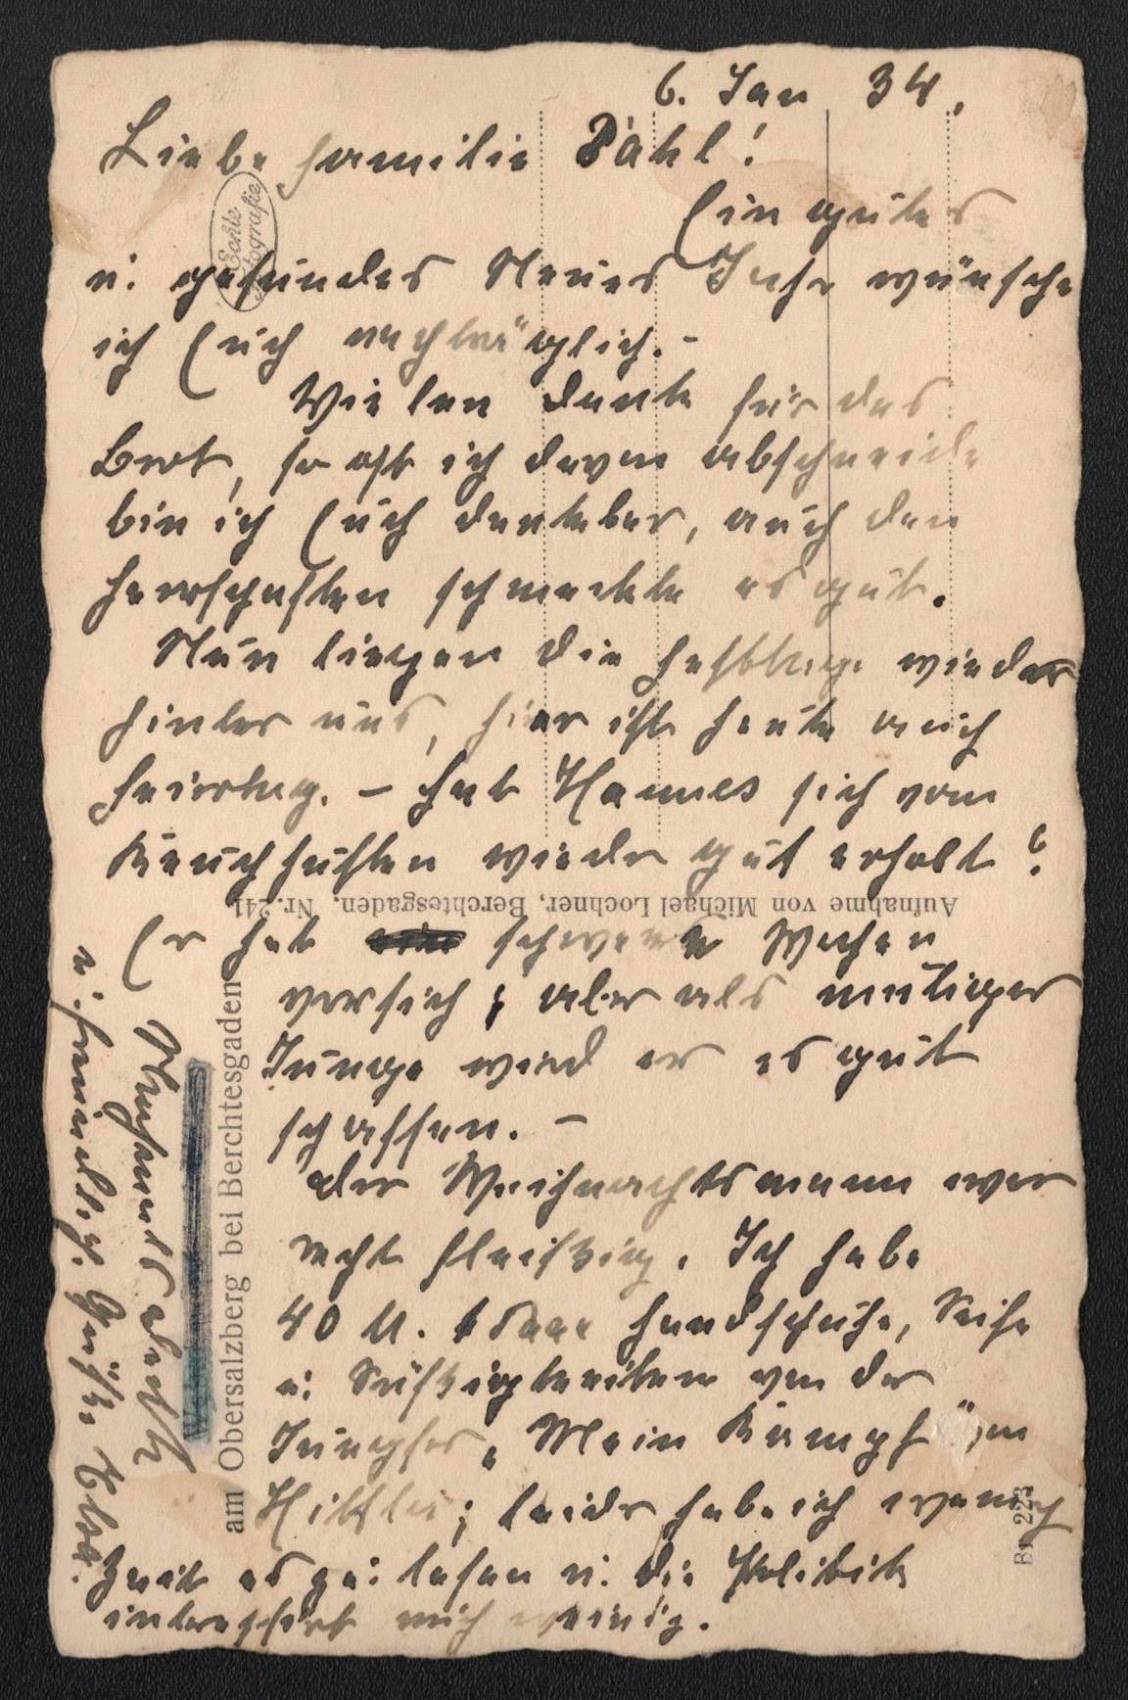 6. Jan 34.
Liebe Familie Pahl!
Ein gutes
u. gesundes Neues Jahr wünsche
ich Euch nachträglich. -
Vielen Dank für das
Brot, so oft ich davon abschneide
bin ich Euch dankbar, auch den
Herrschaften schmeckte es gut.
Nun liegen die Festtage wieder
hinter uns, hier ist heute auch
Feiertag. – Hat Hannes sich vom
Keuchhusten wieder gut erholt?
Er hat schwere Wochen
vor sich, aber als mutiger
Junge wird er es gut
schaffen. –
Der Weihnachtsmann war
recht fleißig. Ich habe
40 M. Handschuhe, Seife
u. Süßigkeiten von der
Jungfer „Mein Kampf" von
Hittler; leider habe ich wenig
Zeit es zu lesen u. die Politik
interessiert mich wenig.
u. freundl. Grüße
Echte Fotografie
Aufnahme von Michael Lochner, Berchtesgaden, Nr. 241
am Obersalzberg bei Berchtesgaden
Br 223